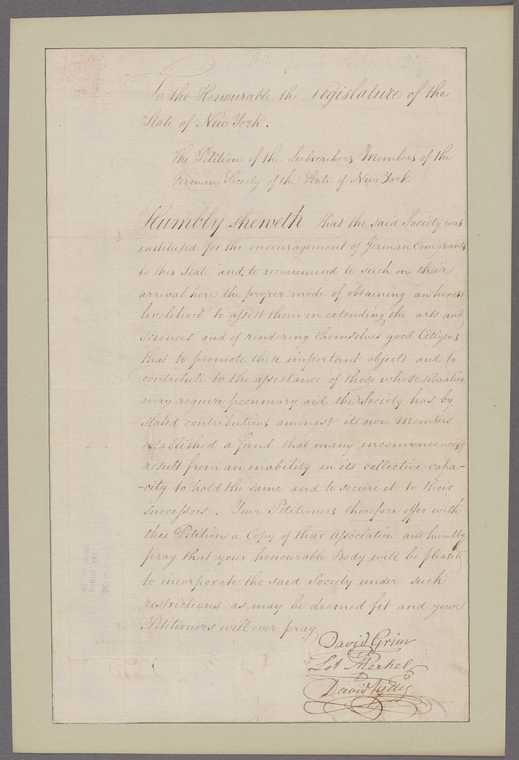 To the Honourable the Legislature of the
State of New York.
The Petition of the Subscribers Members of the
German Society of the State of New York
Humbly sheweth that the said Society was
instituted for the encouragement of German Emigrants
to this State and to recommend to such on their
arrival here the proper mode of obtaining an honest
livelihood to assist them in extending the arts and
sciences and of rendering themselves good Citizens
that to promote these important objects and to
contribute to the assistance of those whose situation
may require pecuniary aid the Society has by
stated contributions amongst its own Members
established a fund that many inconveniences
result from an inability in its collective capa-
-city to hold the same and to secure it to their
Successors. Your Petitioners therefore offer with
this Petition a Copy of their Association and humbly
pray that your honourable Body will be pleased
to incorporate the said Society under such
restrictions as may be deemed fit and your
Petitioners will ever pray
David Grim
Lot Merkel
David